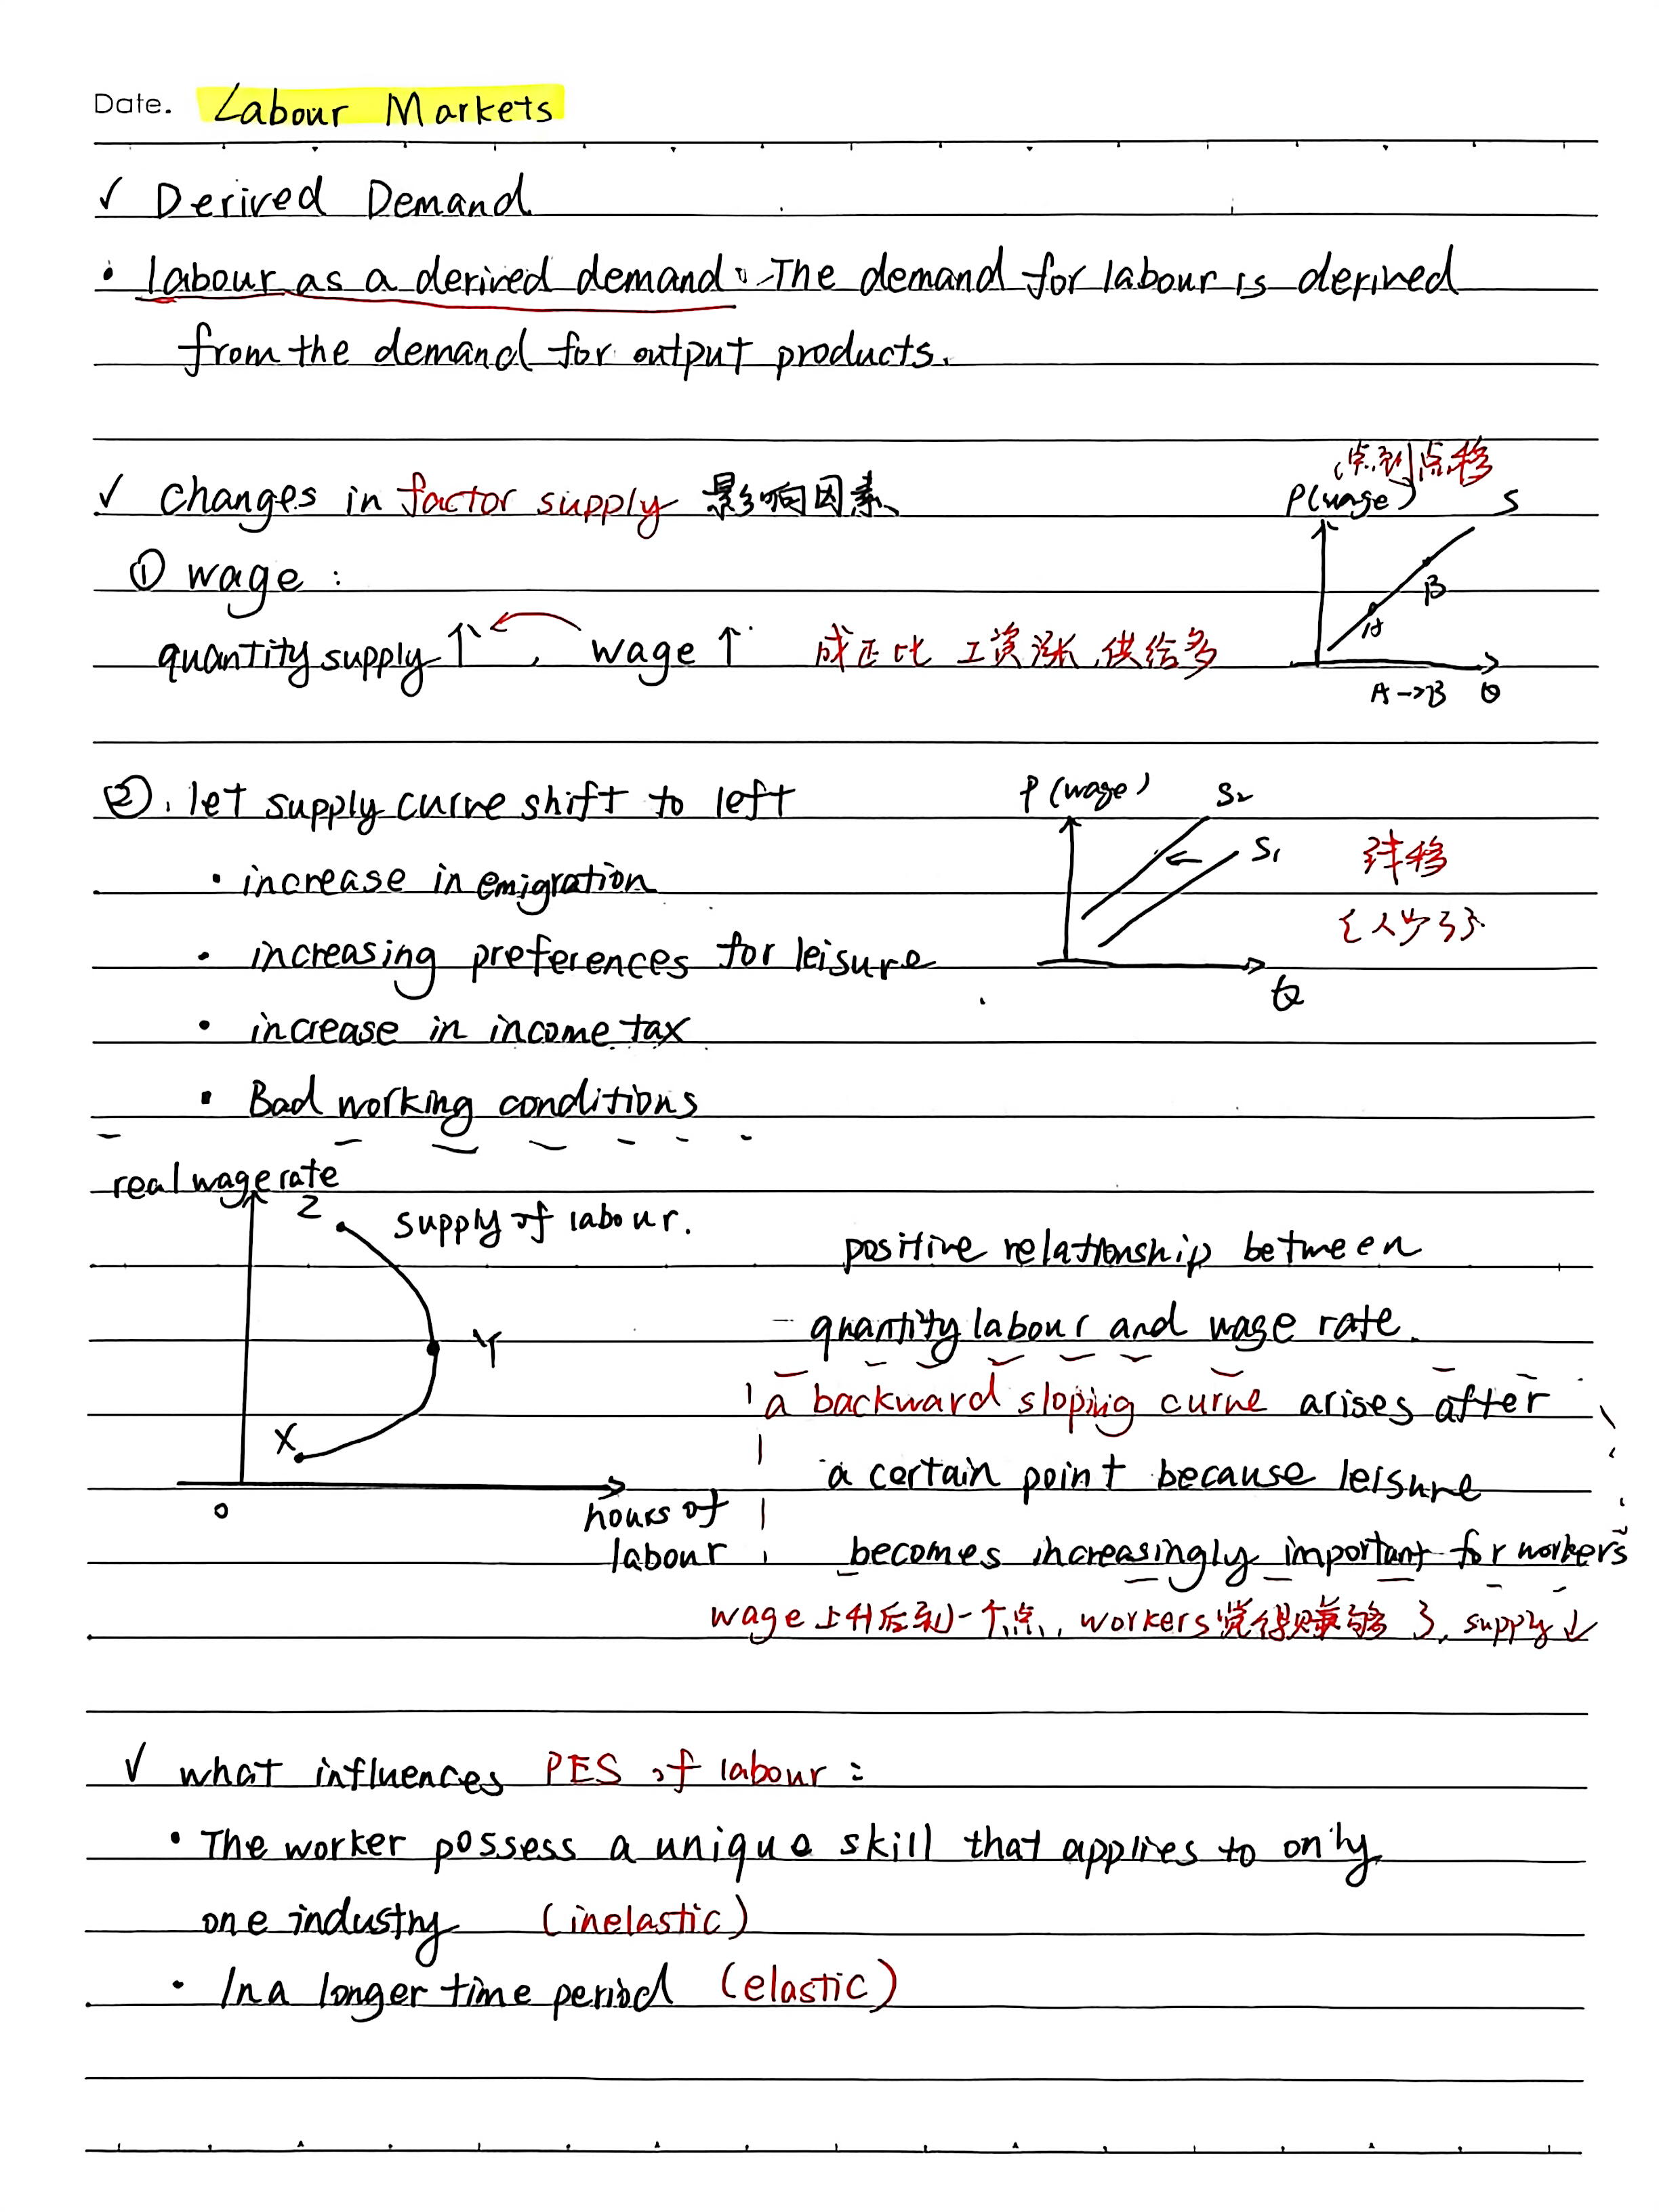 Date. Labour Markets
✓ Derived Demand
• labour as a derived demand: The demand for labour is derived
from the demand for output products.
✓ changes in factor supply 影响因素
(点到点移)
P(wage)
S
B
A
A->B Q
① wage:
quantity supply ↑ , wage ↑ 成正比 工资涨,供给多
②. let supply curve shift to left
P(wage) S2
S1
Q
• increase in emigration
• increasing preferences for leisure
• increase in income tax
• Bad working conditions
real wage rate
Z supply of labour.
Y
X
0
hours of
labour
positive relationship between
quantity labour and wage rate.
a backward sloping curve arises after
a certain point because leisure
becomes increasingly important for workers
wage上升后到一个点, workers觉得赚够了, supply↓
✓ what influences PES of labour:
• The worker possess a unique skill that applies to only
one industry (inelastic)
• In a longer time period (elastic)